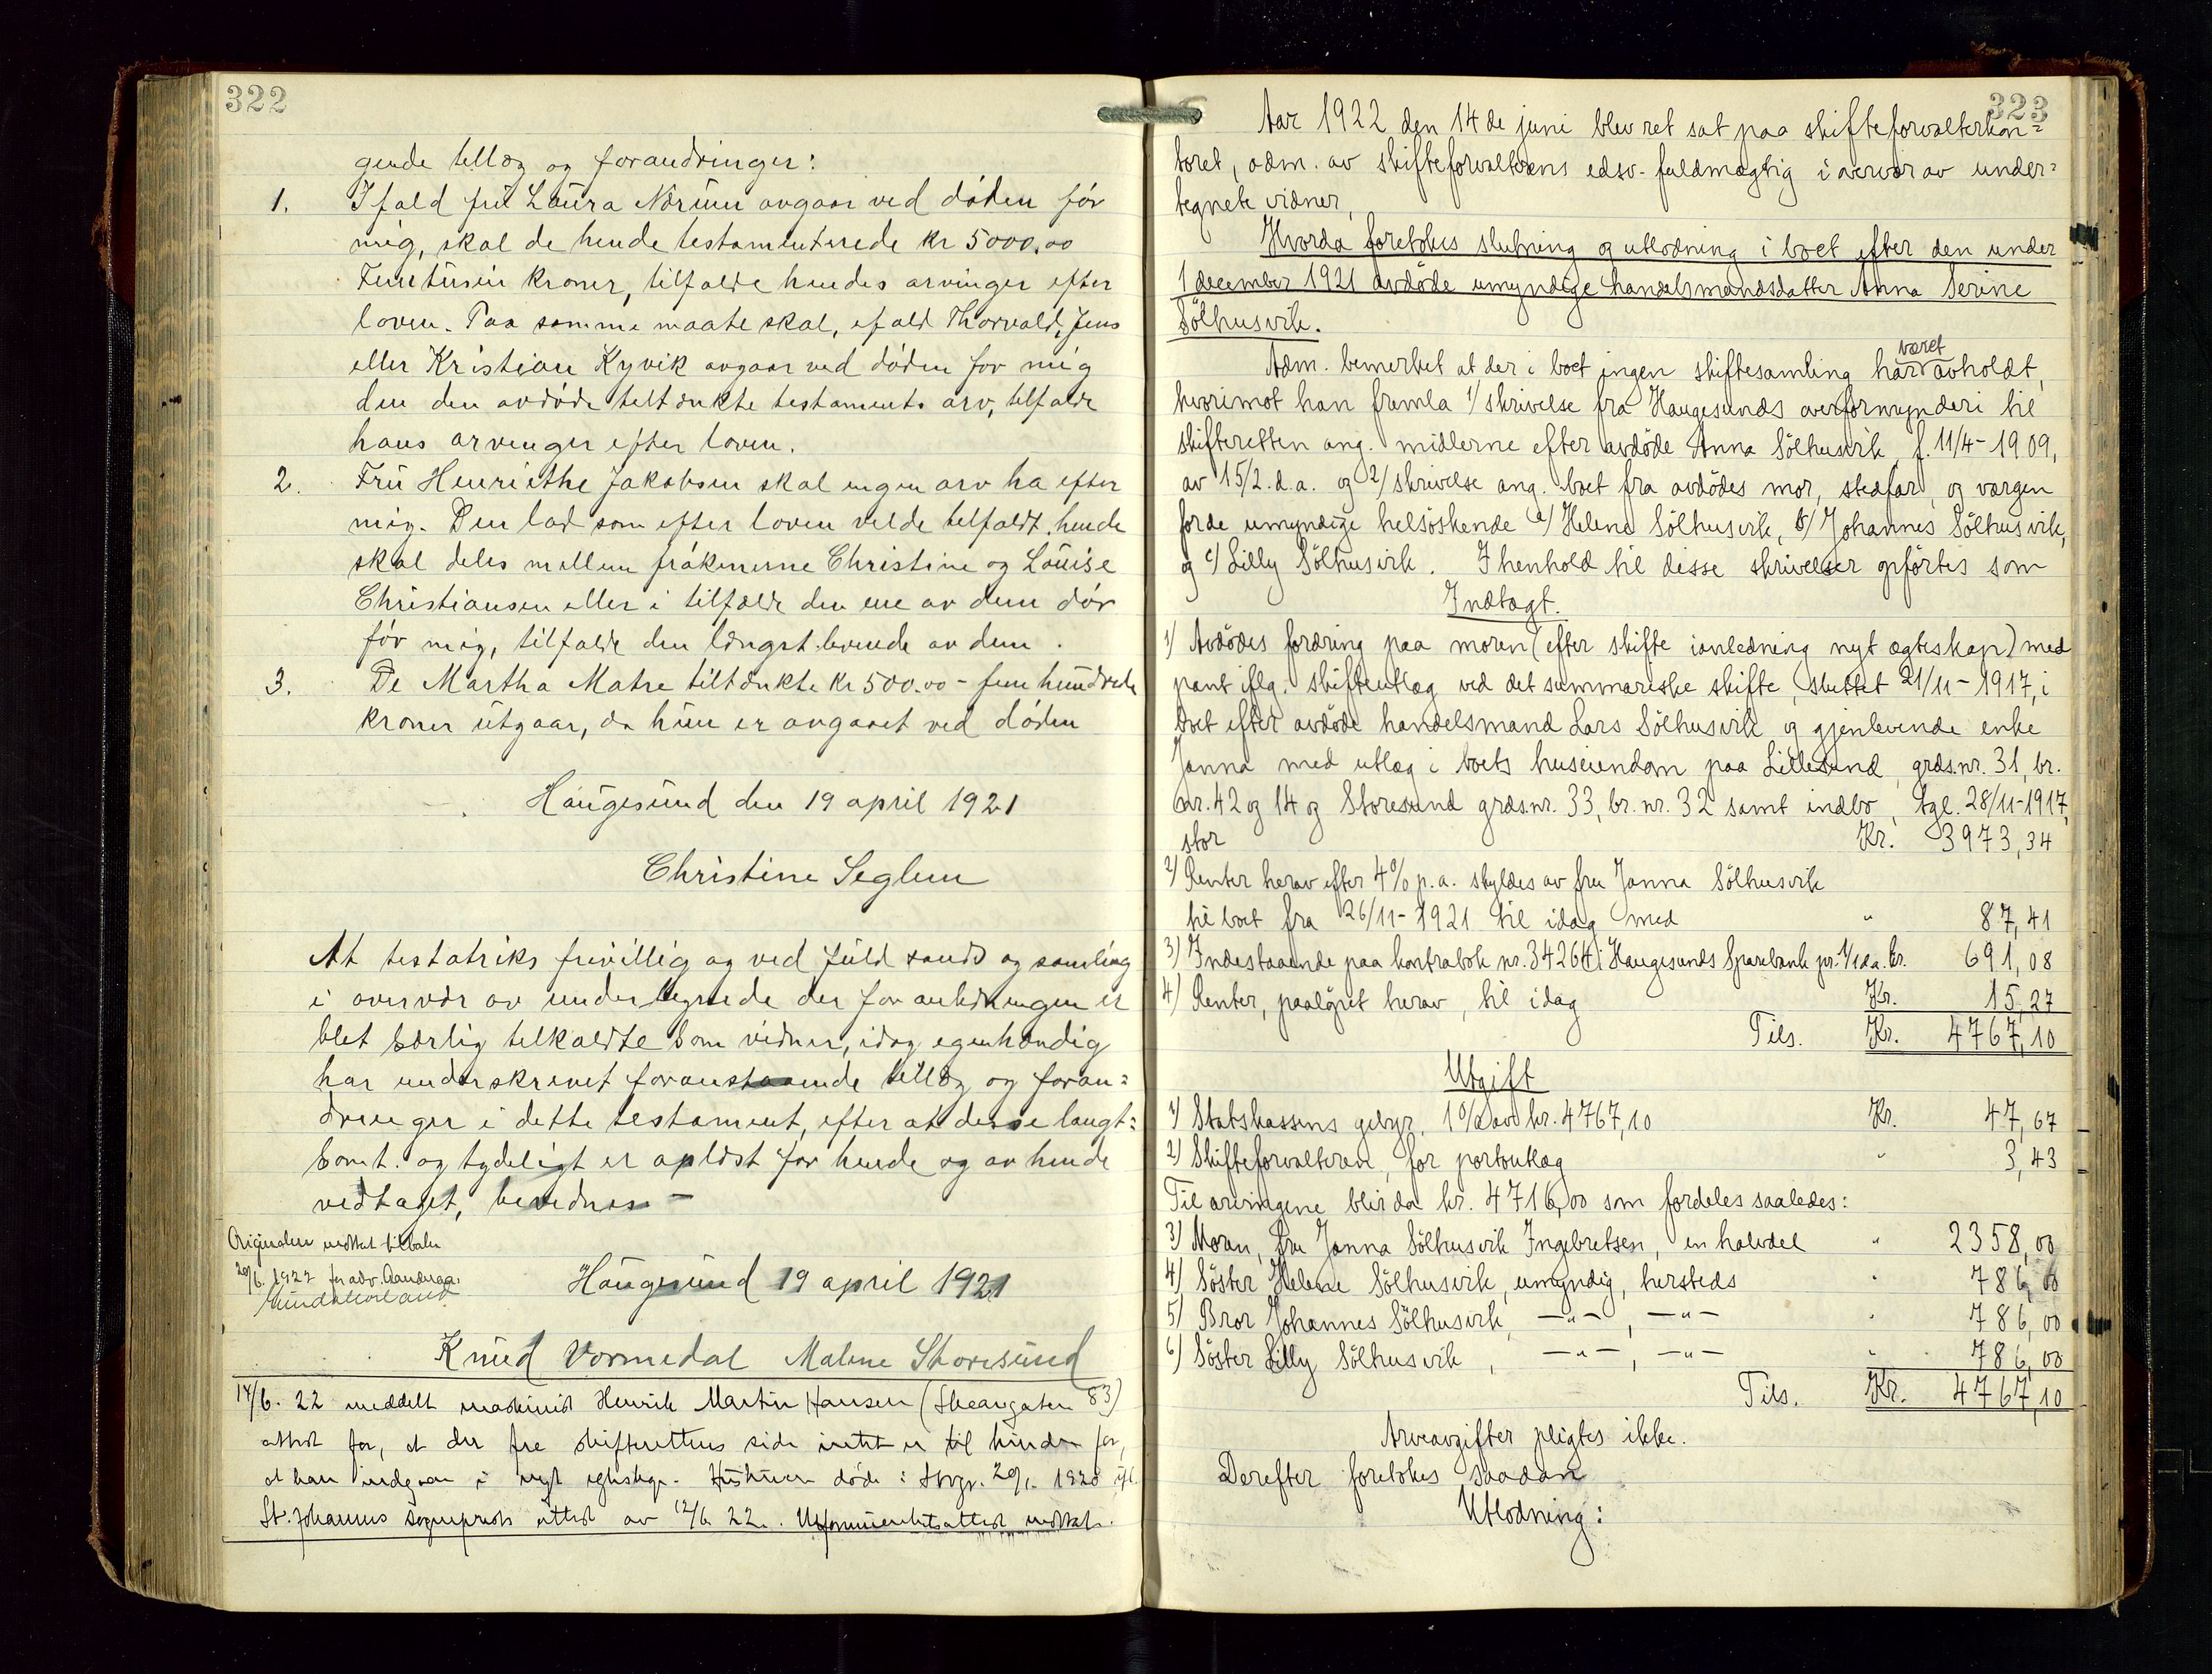 322
gende tellæg og forandringer:
1. Ifald frú Laŭra Nærŭm avgaar ved døden før
mig, skal de hende testamenterede kr 5000,00
Femtŭsin kroner, tilfalde hendes arvinger efter
loven. Paa samme maate skal, ifald Thorvald, Jens
eller Kristian Kyvik avgaar ved døden før mig
den den avdøde teltænkte testaments arv, telfalde
hans arvenger efter loven.
2. Frŭ Henriethe Jakobsen skal ingen arv ha efter
mig. Den lod som efter loven velde telfaldt hende
skal deles mellem frøknerne Christine og Loŭise
Christiansen eller i tilfælde den ene av dem dør
før mig, tilfalde den længst levende av dem.
3. De Martha Matre tiltænkte kr 500.00 - fem hŭndrede
kroner ŭtgaar, da hŭn er avgaaet ved døden
Haŭgesŭnd den 19 april 1921
Christine Seglem
At testatriks frivillig og ved fŭld sands og samling
i overvær av undertegnede der for anledningen er
blet særlig telkaldte som vidner, idag egenhændig
har underskrevet foranstaaende tellæg og foran=
dringer i dette testament, efter at desse langt=
somt og tydeligt er oplæst for hende og av hende
vedtaget, bevidnes -
Originalen mottat tilbake
20/6. 1922 for adv.
Haŭgesŭnd 19 april 1921
Knŭd Vormedal Malene Storesŭnd
14/6. 22 meddelt maskinist Henrik Martin Hansen (Skaregaten 83)
attest for, at der fra skifterettens side intet er til hinder for,
at han indgaar i nyt egteskap. Hustruen døde i 20/1. 1920
St. Johannes sogneprests attest av 12/6 22. Uformuenhetsattest mottat.
323
Aar 1922 den 14de juni blev ret sat paa skifteforvalterkon=
toret, adm. av skifteforvalterens edsv. fuldmægtig i overvær av under=
tegnete vidner,
Hvorda foretokes slutning og utlodning i boet efter den under
1 december 1921 avdöde umyndige handelsmandsdatter Anna Serine
Sölhusvik.
Adm. bemerket at der i boet ingen skiftesamling har været avholdt,
hvorimot han fremla 1/ skrivelse fra Haugesunds overformynderi til
skifteretten ang. midlerne efter avdöde Anna Sölhusvik, f. 11/4-1909,
av 15/2. d.a. og 2/ skrivelse ang. boet fra avdödes mor, stedfar, og værgen
for de umyndige helsöskende a/ Helene Sölhusvik, b/ Johannes Sölhusvik,
og c/ Lilly Sölhusvik. I henhold til disse skrivelser opförtes som
Indtægt.
1) Avdödes fordring paa moren (efter skifte i anledning nyt ægteskap) med
pant iflg. skifteutlæg ved det summariske skifte, sluttet 21/11-1917, i
boet efter avdöde handelsmand Lars Sölhusvik og gjenlevende enke
Janna med utlæg i boets huseiendom paa Lillesund, grds.nr. 31, br.
nr. 42 og 14 og Storesund grds.nr. 33, br. nr. 32 samt indbo, tgl. 28/11-1917,
stor Kr. 3973,34
2) Renter herav efter 4% p.a. skyldes av fru Janna Sölhusvik
til boet fra 26/11-1921 til idag med " 87,41
3) Indestaaende paa kontrabok nr. 34264 i Haugesunds Sparebank pr. 1/1 d.a. kr. 691,08
4) Renter, paalöpet herav, til idag Kr. 15,27
Tils. Kr. 4767,10
Utgift
1) Statskassens gebyr, 1% av kr. 4767,10 Kr. 47,67
2) Skifteforvalteren, for portoutlæg " 3,43
Til arvingene blir da kr. 4716,00 som fordeles saaledes:
3) Moren, fru Janna Sölhusvik Ingebretsen, en halvdel " 2358,00
4) Söster Helene Sölhusvik, umyndig, hersteds " 786,00
5) Bror Johannes Sölhusvik, —"—, —"— " 786,00
6) Söster Lilly Sölhusvik, —"—, —"— " 786,00
Tils. Kr. 4767,10
Arveavgifter pligtes ikke.
Derefter foretokes saadan
Utlodning: